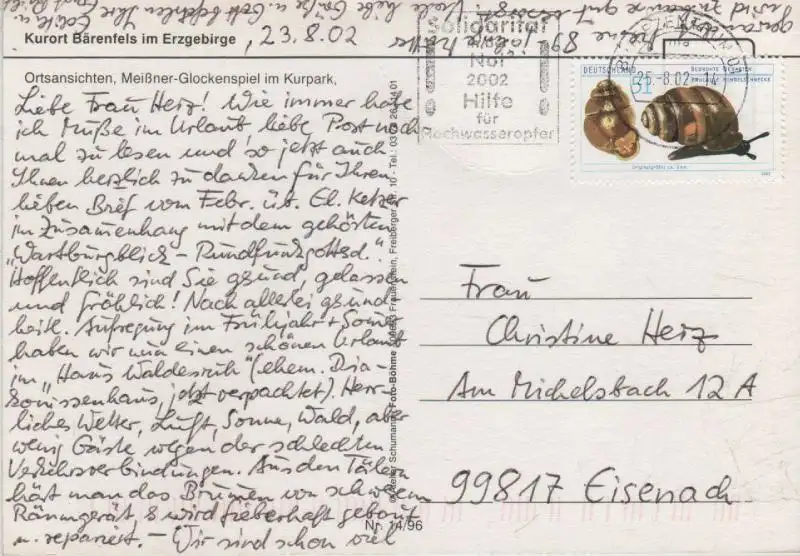 Kurort Bärenfels im Erzgebirge
, 23.8.02
Ortsansichten, Meißner-Glockenspiel im Kurpark,
Liebe Frau Herz! Wie immer habe
ich Muße im Urlaub, liebe Post noch
mal zu lesen und so jetzt auch
Ihnen herzlich zu danken für Ihren
lieben Brief vom Febr. üb. El. Ketzer
im Zusammenhang mit dem gehörten
„Wartburgblick – Rundfunkgottsd."
Hoffentlich sind Sie gesund, gelassen
und fröhlich! Nach allerlei gesund-
heitl. Aufregung im Frühjahr + Sommer
haben wir nun einen schönen Urlaub
im „Haus Waldesruh" (ehem. Dia-
konissenhaus, jetzt verpachtet). Herr-
liches Wetter, Luft, Sonne, Wald, aber
wenig Gäste wegen der schlechten
Verkehrsverbindungen. Aus den Tälern
hört man das Brummen von schwerem
Räumgerät, es wird fieberhaft gebaut
u. repariert. – Wir sind schon viel
Nr. 14/96
Foto-Böhme
Solidarität
Not
2002
Hilfe
für
Hochwasseropfer
25.-8.02.-14
DEUTSCHLAND
51
2002
Frau
Christine Herz
Am Michelsbach 12 A
99817 Eisenach